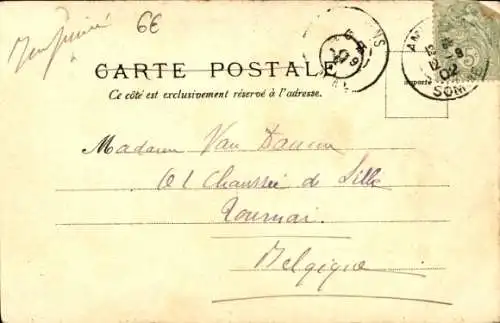 6E
CARTE POSTALE
Ce côté est exclusivement réservé à l'adresse.
Madame Van
61 Chaussée de Lille
Tournai
Belgique
AM
02
SOM
5